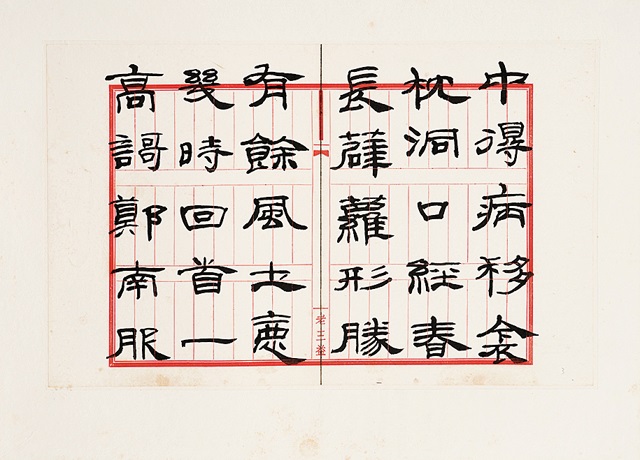 中得病移衾
枕洞口經春
長薜蘿形勝
有餘風土惡
幾時回首一
高謌鄭南服
老三益